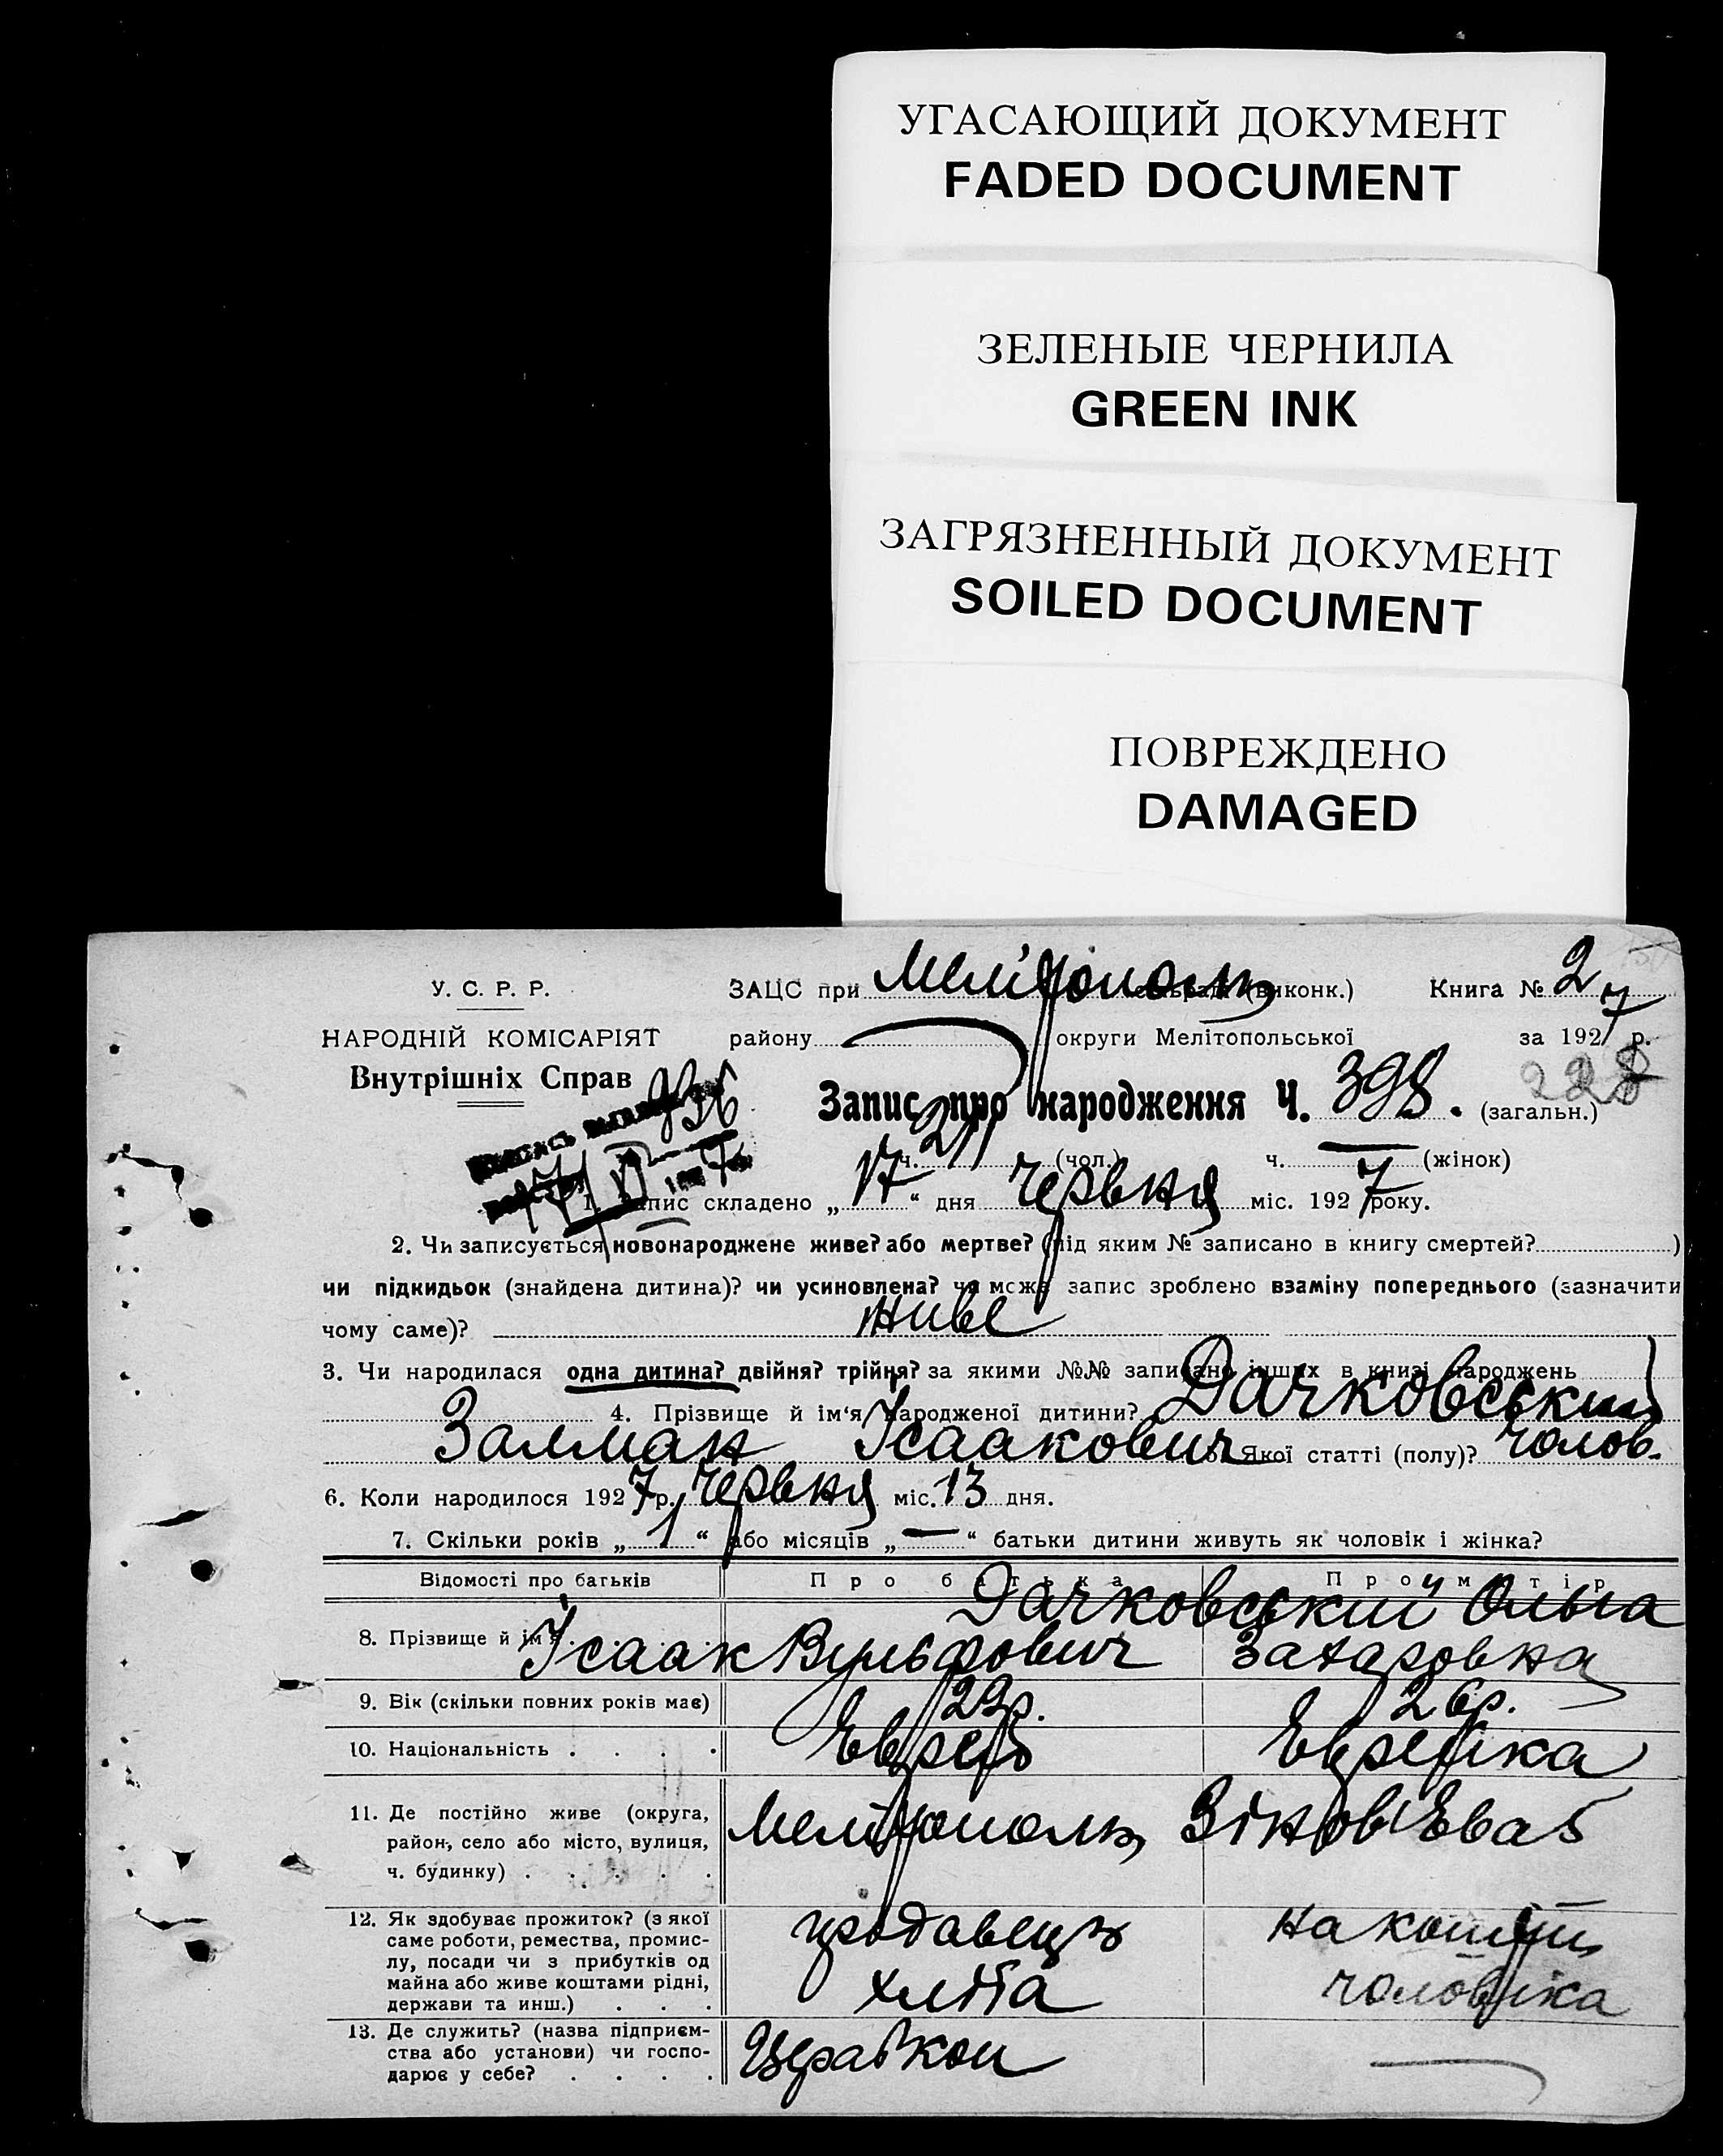 УГАСАЮЩИЙ ДОКУМЕНТ
FADED DOCUMENT
ЗЕЛЕНЫЕ ЧЕРНИЛА
GREEN INK
ЗАГРЯЗНЕННЫЙ ДОКУМЕНТ
SOILED DOCUMENT
ПОВРЕЖДЕНО
DAMAGED
У. С. Р. Р. ЗАЦС при Мелітополь (виконк.) Книга № 2
НАРОДНІЙ КОМІСАРІЯТ району округи Мелітопольської за 1927 р.
Внутрішніх Справ
Запис про народження Ч. 398. (загальн.)
ч. 211 (чол.) ч. — (жінок)
1. Запис складено „17“ дня Червня міс. 1927 року.
2. Чи записується новонароджене живе? або мертве? (під яким № записано в книгу смертей? )
чи підкидьок (знайдена дитина)? чи усиновлена? чи може запис зроблено взаміну попереднього (зазначити
чому саме)? живе
3. Чи народилася одна дитина? двійня? трійня? за якими №№ записано інших в книзі народжень
4. Прізвище й ім'я народженої дитини? Дачковський
Залман Ісаакович 5. Якої статті (полу)? чолов.
6. Коли народилося 1927 р. Червня міс. 13 дня.
7. Скільки років „1“ або місяців „—“ батьки дитини живуть як чоловік і жінка?
Відомості про батьків Про батька Про матір
Дачковський Ольга
8. Прізвище й ім'я Ісаак Вульфович Захаровна
9. Вік (скільки повних років має) 29р. 26р.
10. Національність . . . . Еврей Еврейка
11. Де постійно живе (округа,
район, село або місто, вулиця,
ч. будинку) . . . . . Мелітополь,
12. Як здобуває прожиток? (з якої
саме роботи, ремества, промис-
лу, посади чи з прибутків од
майна або живе коштами рідні,
держави та инш.) . . . продавець хліба на кошти чоловіка
13. Де служить? (назва підприєм-
ства або установи) чи госпо-
дарює у себе? . . . . Церабкоп —